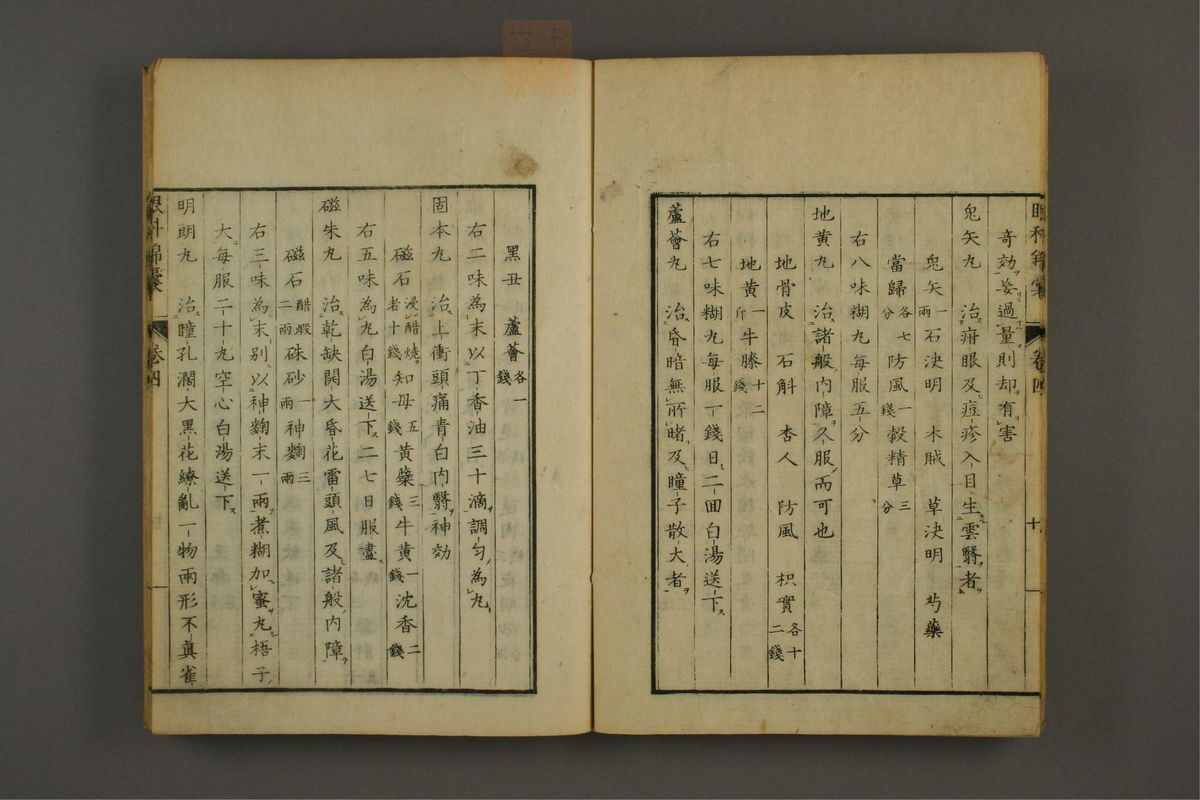 奇効妄過量則却有害
兎矢丸　治疳眼及痘疹入目生雲翳者
兎矢一兩　石決明　木賊　草決明　芍藥
當歸各七分　防風一錢　穀精草三分
右八味糊丸每服五分
地黄丸　治諸般内障久服而可也
地骨皮　石斛　杏人　防風　枳實各十二錢
地黄一斤　牛膝十二錢
右七味糊丸每服一錢日二囬白湯送下
蘆薈丸　治昏暗無所睹及瞳子散大者
眼科錦囊　卷四　十
黑丑　蘆薈各一錢
右二味為末以丁香油三十滴調勻為丸
固本丸　治上衝頭痛青白内翳神効
磁石浸醋燒者十錢　知母五錢　黄蘗三錢　牛黄一錢　沈香二錢
右五味為丸白湯送下二七日服盡
磁朱丸　治乾缺閞大昏花雷頭風及諸般内障
磁石醋煆二兩　硃砂一兩　神麴三兩
右三味為末別以神麴末一兩煮糊加蜜丸梧子
大每服二十丸空心白湯送下
明朗丸　治瞳孔濶大黑花繚亂一物兩形不真雀
眼科錦囊　卷四